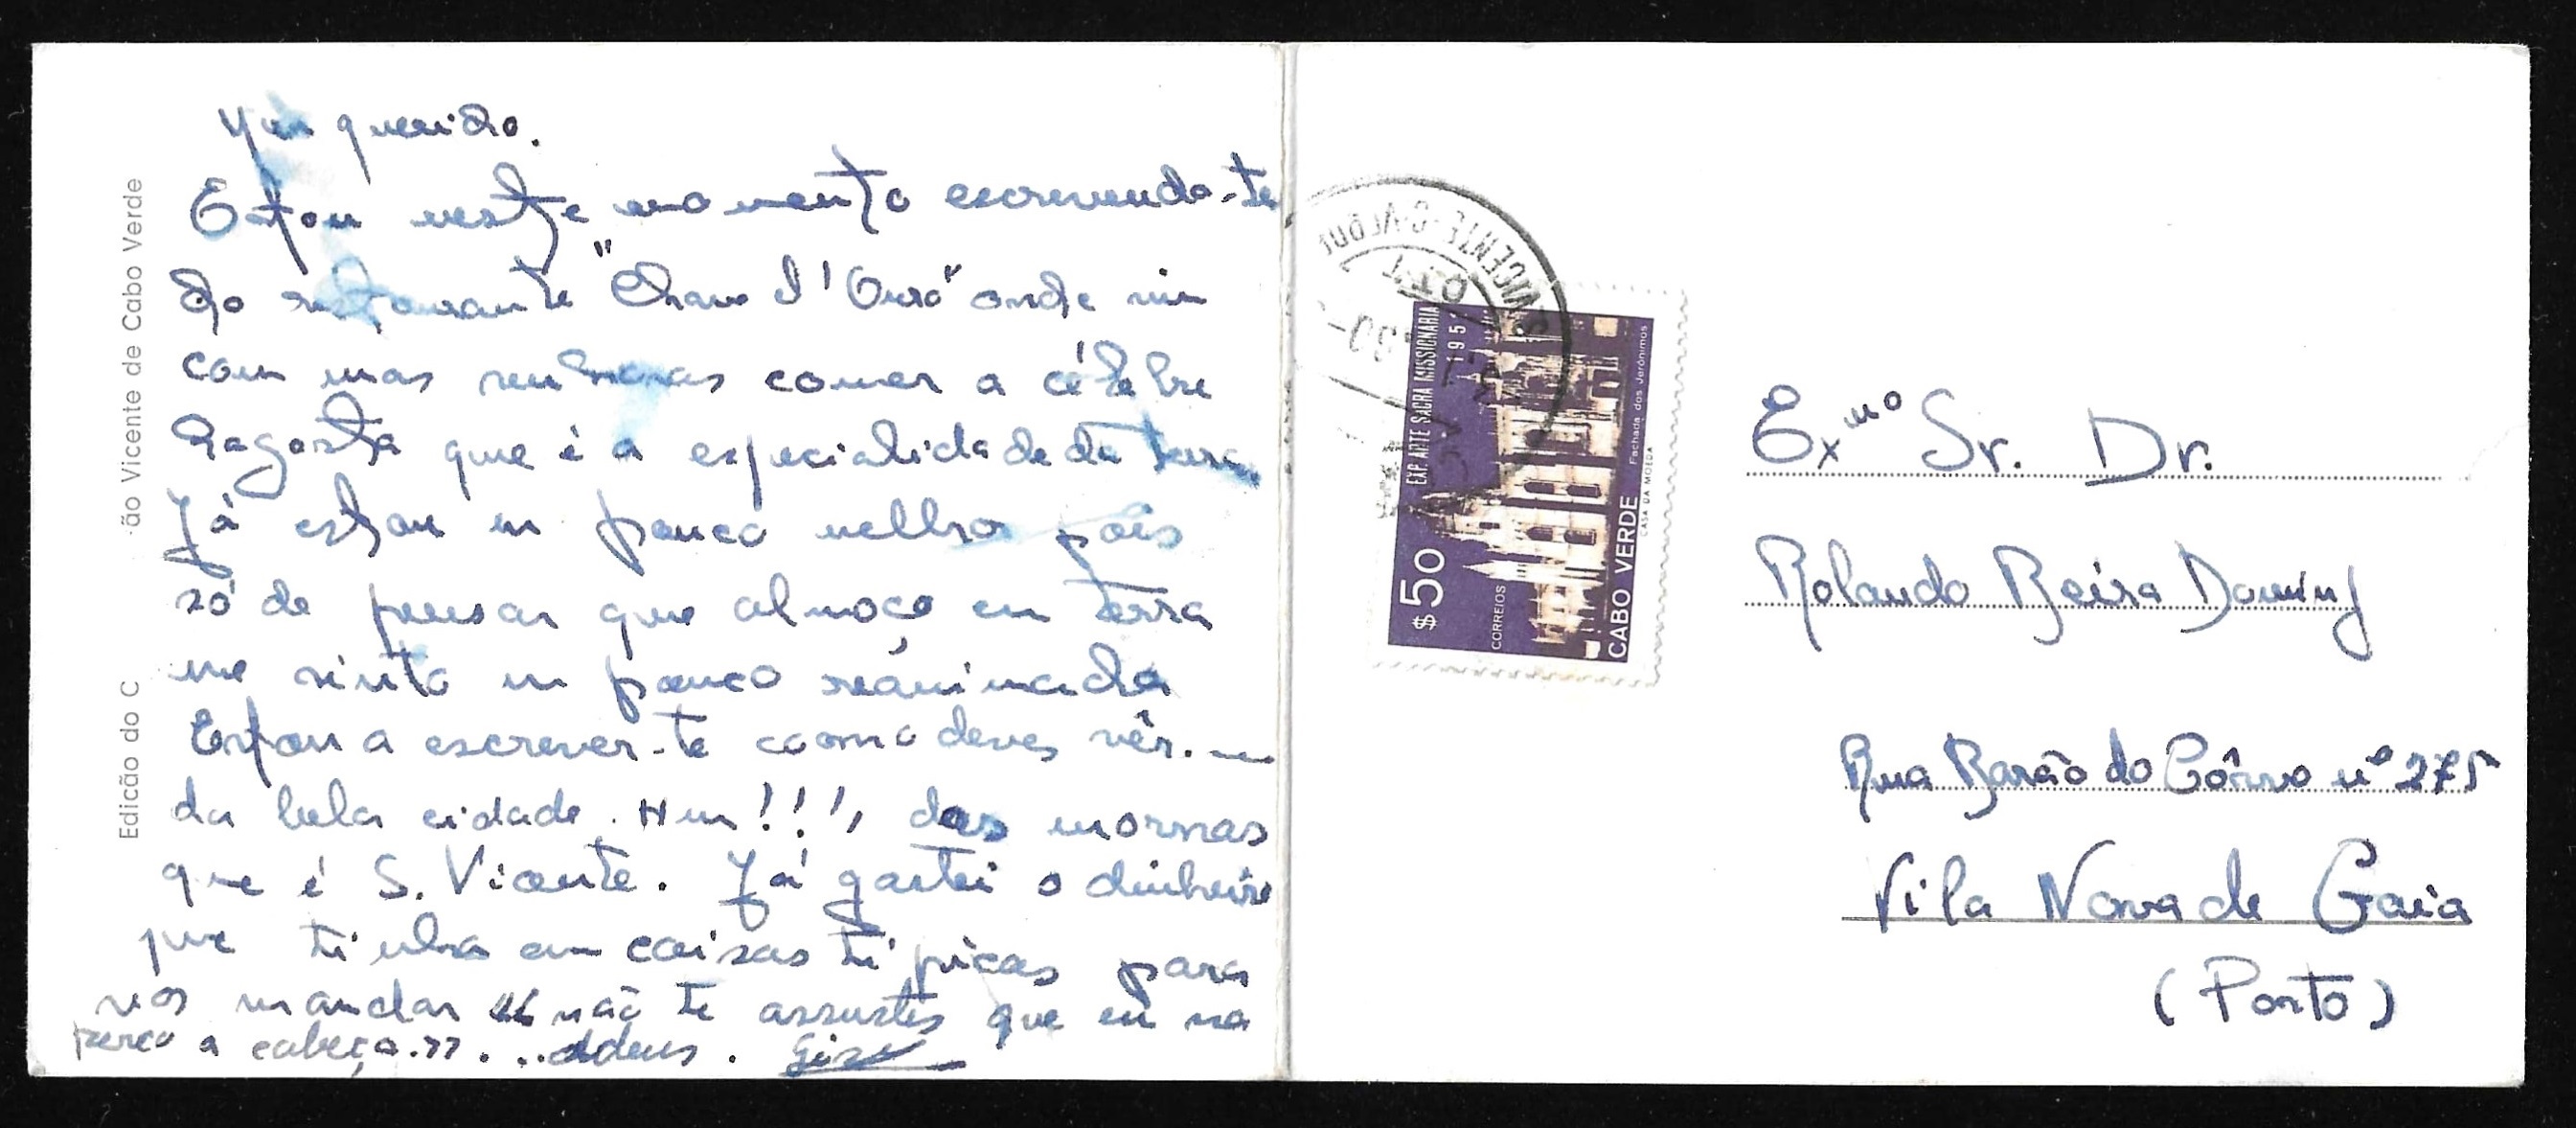 Meu querido.
Estou neste momento escrevendo-te
do restaurante "Chave d'Ouro" onde vim
com umas senhoras comer a célebre
lagosta que é a especialidade da terra
Já estou um pouco melhor pois
só de pensar que almoço em terra
me sinto um pouco reánimada
Estou a escrever-te como deves vêr.
da bela cidade. Hum!!!, das mornas
que é S. Vicente. Já gastei o dinheiro
que tinha em coisas tipicas para
vos mandar não te assustes que eu na
perco a cabeça.>> ... Adeus.
Edicão do C
ão Vicente de Cabo Verde
S. VICENTE-C. VERDE
EXP. ARTE SACRA MISSIONÁRIA
1951
$50
CORREIOS
CABO VERDE
Fachada dos Jerónimos
CASA DA MOEDA
Exmº Sr. Dr.
Rolando Beira
Rua Barão do Côrvo nº 275
Vila Nova de Gaia
(Porto)